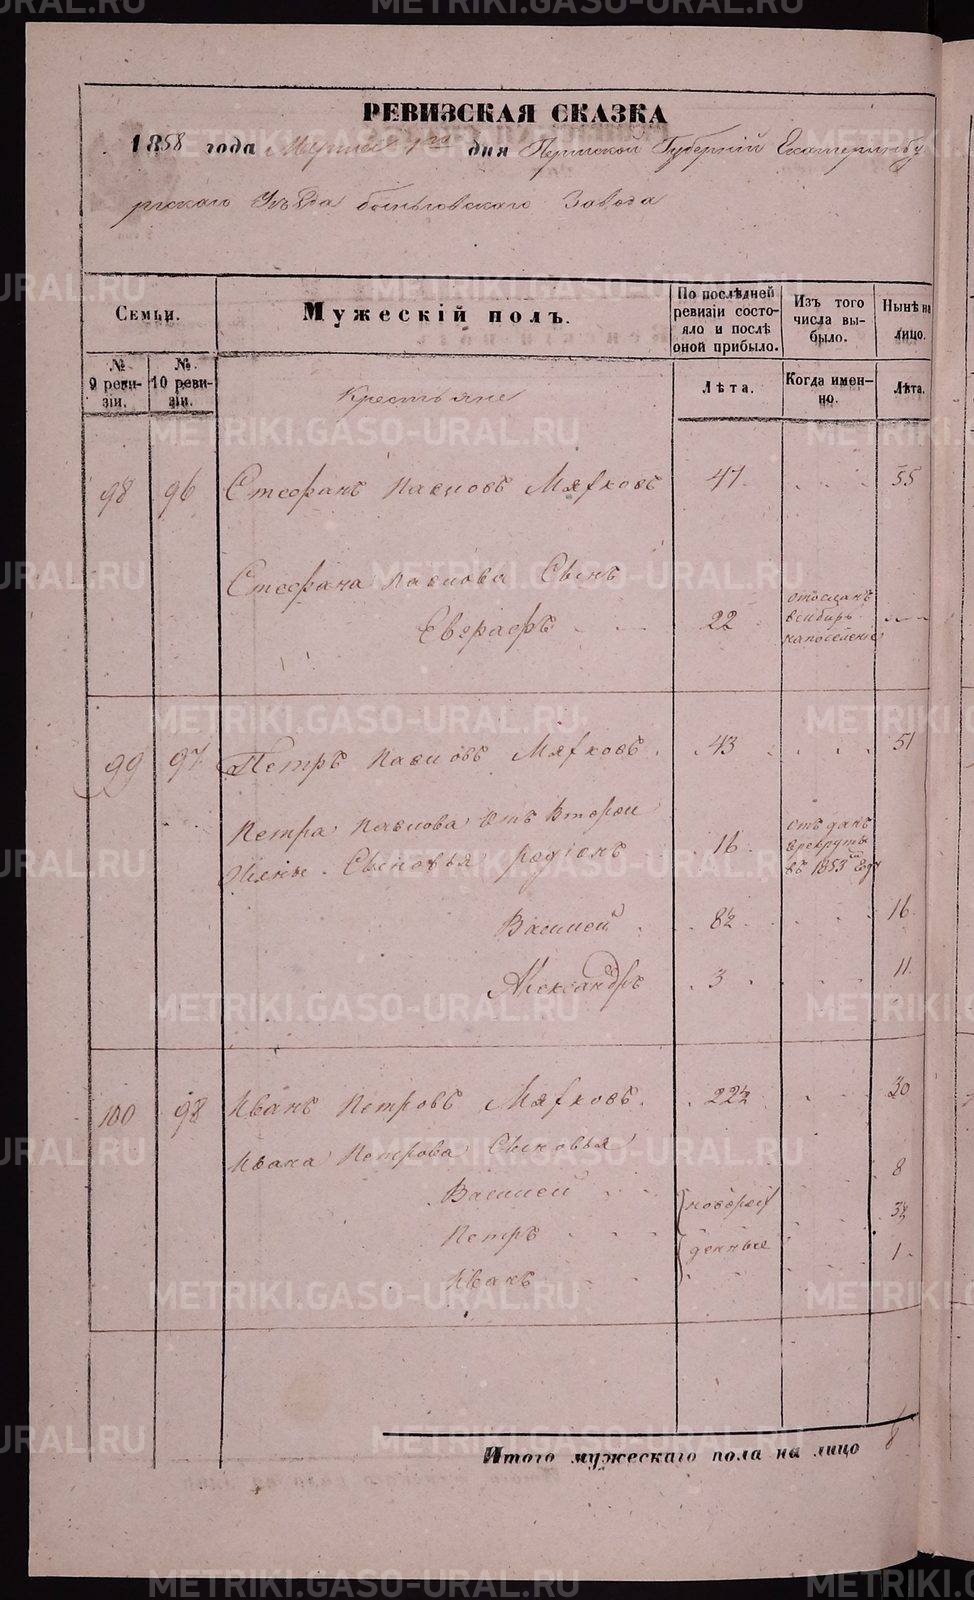 РЕВИЗСКАЯ СКАЗКА
1858 года Марта 1го дня Пермской Губерніи Екатеринбу
ргскаго Уѣзда быньговскаго Завода
Семьи.
Мужескій полъ.
По послѣдней ревизіи состояло и послѣ оной прибыло.
Изъ того числа выбыло.
Нынѣ на лицо.
№ 9 ревизіи.
№ 10 ревизіи.
Лѣта.
Когда именно.
Лѣта.
Крестьяне
98 96 Стефанъ Павловъ Мяхковъ 47 55
Стефана Павлова Сынъ
Евграфъ 22 отосланъ
всибирь
напоселеніе
99 97 Петръ Павловъ Мяхковъ 43 51
Петра Павлова Отъ Второй
Жены Сыновья родіонъ 16 отъданъ
врекруты
въ 1853 Году
Василей 8½ 16
Александръ 3 11
100 98 Иванъ Петровъ Мяхковъ 22½ 30
Ивана Петрова Сыновья
Василей 8
Петръ новорож 3½
Иванъ денные 1
Итого мужескаго пола на лицо 8
METRIKI.GASO-URAL.RU